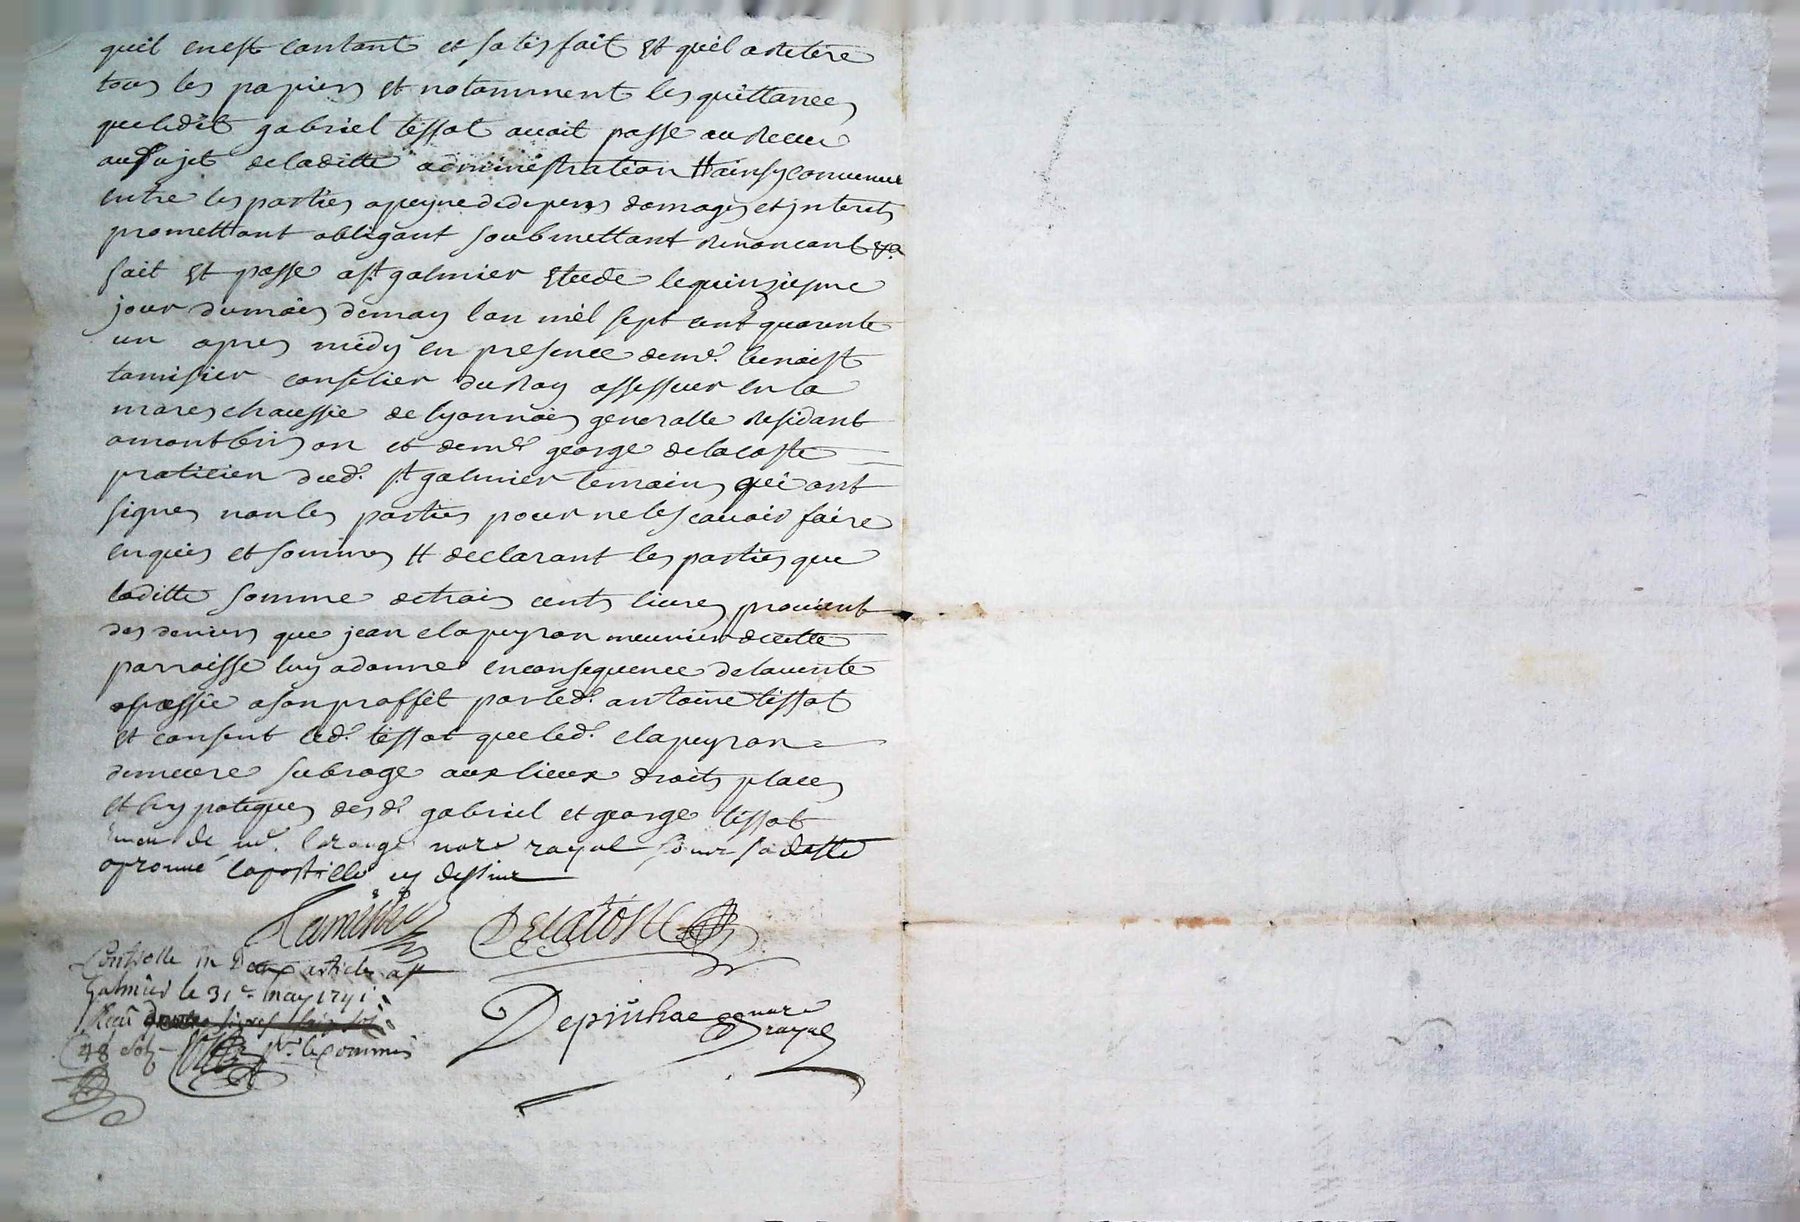 quil en est contant et satisfait et quil a retere
tous les papiers et notamment les quittances
que ledit gabriel tissot avait passe au
au sujet de laditte administration # ainsy convenu
entre les parties a peyne de depens domages et jnterets
promettant obligant soubmettant renoncant &a
fait et passe a st galmier etude le quinziesme
jour du mois de may l'an mil sept cent quarente
un apres midy en presence de me. benoist
tamisier conselier du Roy assesseur en la
mareschaussée de lyonnois generalle residant
a montbrison et de me george delacoste
praticien dud. st galmier temoins qui ont
signes non les parties pour ne le scavoir faire
enquis et sommes # declarant les parties que
laditte somme de trois cents livres provient
des deniers que jean clapeyron meunier de cette
parroisse luy a donne en consequence de la vente
passée a son proffit par led. antoine tissot
et consent led. tissot que led. clapeyron
demeure subroge aux lieux droits places
et hypoteques desd. gabriel et george tissot
de me. notre royal
aprouvé lapostille cy dessus
Tamisier Delacoste
Controlle en Deux articles a st
Galmier le 31e may 1741
Recu
48 sols pr. le commis
Depinhac nore
royal